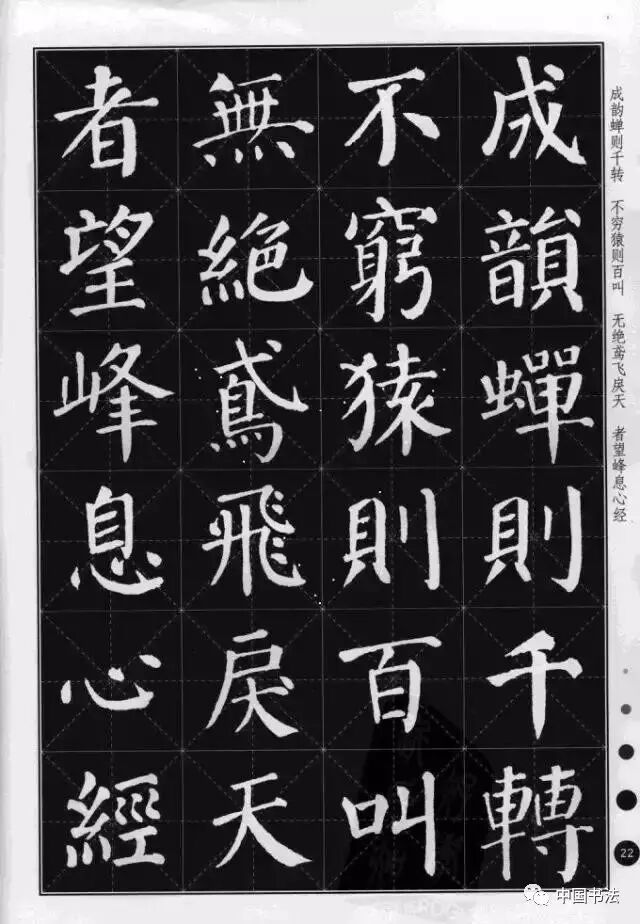 成韻蟬則千轉
不窮猿則百叫
無絶鳶飛戾天
者望峰息心經
成韵蝉则千转 不穷猿则百叫 无绝鸢飞戾天 者望峰息心经
22
中国书法